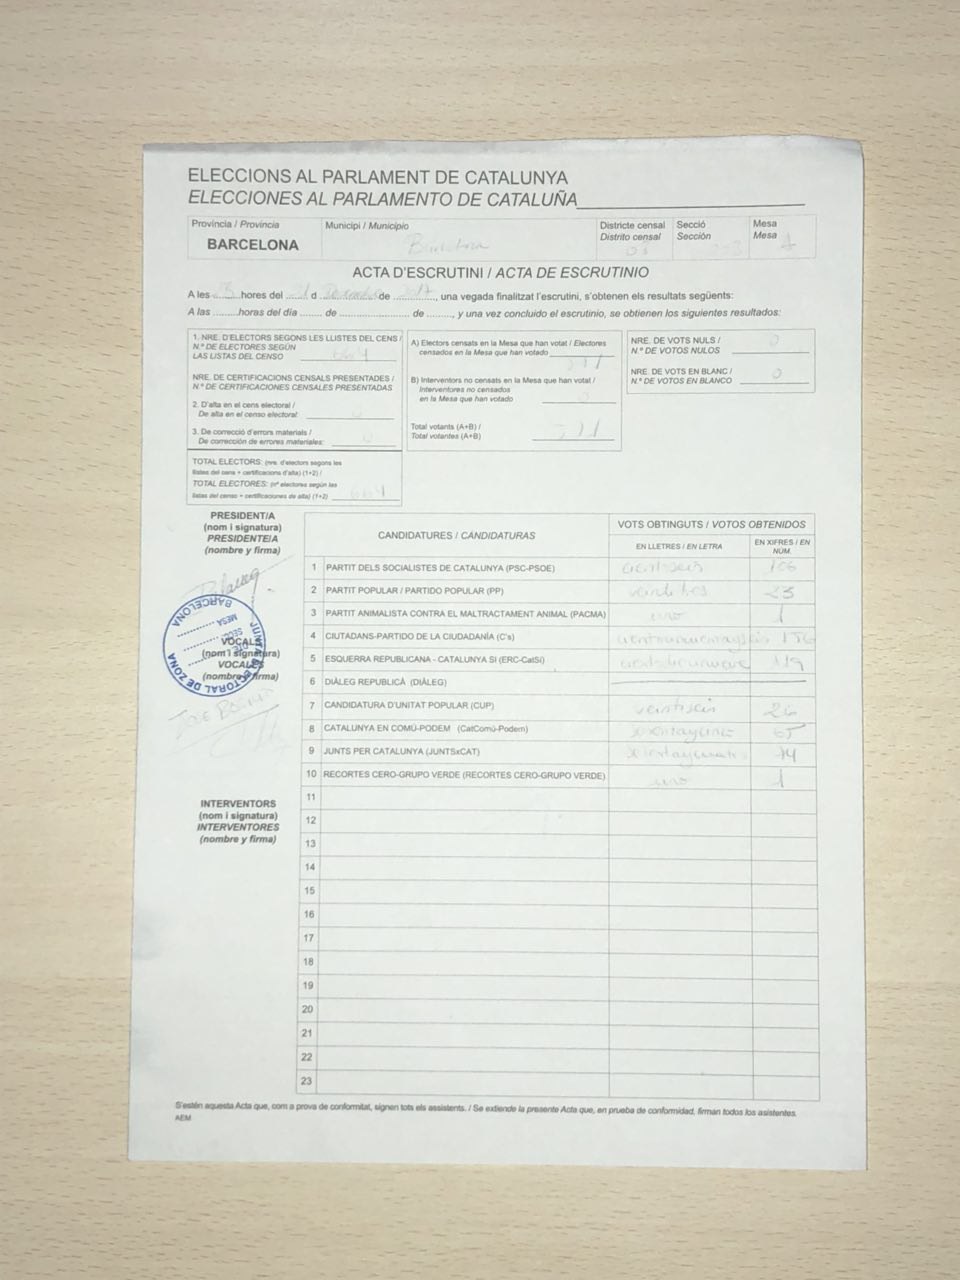 ELECCIONS AL PARLAMENT DE CATALUNYA
ELECCIONES AL PARLAMENTO DE CATALUÑA
Província / Provincia
BARCELONA
Municipi / Municipio
Barcelona
Districte censal
Distrito censal
Secció
Sección
Mesa
Mesa
A
ACTA D'ESCRUTINI / ACTA DE ESCRUTINIO
A les hores del d de 2017, una vegada finalitzat l'escrutini, s'obtenen els resultats següents:
A las horas del día de de , y una vez concluido el escrutinio, se obtienen los siguientes resultados:
1. NRE. D'ELECTORS SEGONS LES LLISTES DEL CENS /
N.º DE ELECTORES SEGÚN
LAS LISTAS DEL CENSO 664
NRE. DE CERTIFICACIONS CENSALS PRESENTADES /
N.º DE CERTIFICACIONES CENSALES PRESENTADAS
2. D'alta en el cens electoral /
De alta en el censo electoral: 0
3. De correcció d'errors materials /
De corrección de errores materiales: 0
TOTAL ELECTORS: (nre. d'electors segons les
llistes del cens + certificacions d'alta) (1+2) /
TOTAL ELECTORES: (nº electores según las
listas del censo + certificaciones de alta) (1+2) 664
A) Electors censats en la Mesa que han votat / Electores
censados en la Mesa que han votado
B) Interventors no censats en la Mesa que han votat /
Interventores no censados
en la Mesa que han votado 0
Total votants (A+B) /
Total votantes (A+B)
NRE. DE VOTS NULS /
N.º DE VOTOS NULOS 0
NRE. DE VOTS EN BLANC /
N.º DE VOTOS EN BLANCO 0
PRESIDENT/A
(nom i signatura)
PRESIDENTE/A
(nombre y firma)
BARCELONA
MESA
SECC
DTE
JUNTA ELECTORAL DE ZONA
VOCALS
(nom i signatura)
VOCALES
(nombre y firma)
JOSE
INTERVENTORS
(nom i signatura)
INTERVENTORES
(nombre y firma)
CANDIDATURES / CANDIDATURAS
VOTS OBTINGUTS / VOTOS OBTENIDOS
EN LLETRES / EN LETRA
EN XIFRES / EN
NÚM.
1 PARTIT DELS SOCIALISTES DE CATALUNYA (PSC-PSOE) 106
2 PARTIT POPULAR / PARTIDO POPULAR (PP) 23
3 PARTIT ANIMALISTA CONTRA EL MALTRACTAMENT ANIMAL (PACMA) uno 1
4 CIUTADANS-PARTIDO DE LA CIUDADANÍA (C's)
5 ESQUERRA REPUBLICANA - CATALUNYA SI (ERC-CatSí) 119
6 DIÀLEG REPUBLICÀ (DIÀLEG)
7 CANDIDATURA D'UNITAT POPULAR (CUP) veintiseis 26
8 CATALUNYA EN COMÚ-PODEM (CatComú-Podem) 65
9 JUNTS PER CATALUNYA (JUNTSxCAT)
10 RECORTES CERO-GRUPO VERDE (RECORTES CERO-GRUPO VERDE) uno 1
11
12
13
14
15
16
17
18
19
20
21
22
23
S'estén aquesta Acta que, com a prova de conformitat, signen tots els assistents. / Se extiende la presente Acta que, en prueba de conformidad, firman todos los asistentes.
AEM